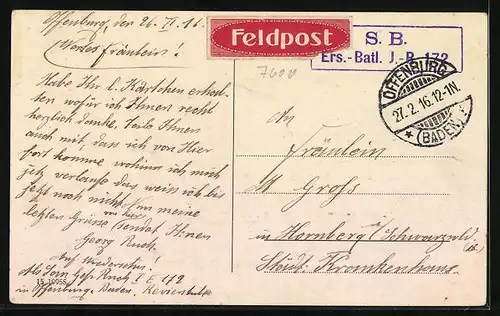 Offenburg, den 26. II. 16.
Wertes Fräulein!
Habe Ihr l. Kärtchen erhal-
ten wofür ich Ihnen recht
herzlich danke. Teile Ihnen
auch mit, dass ich von hier
fort komme wohin ich mich
jetz verlaufe das weis ich bis
jetzt noch nicht. Nun meine
letzten Grüsse von hier sendet Ihnen
Georg Ruch.
Auf Wiedersehn!
Abs. Gefr. Ruch E. 172
in Offenburg Baden.
15 10955
Feldpost
7600
S. B.
Ers.-Batl. J.-R. 172
OFFENBURG
27.2.16.12-1N.
* (BADEN) *
An
Fräulein
M Gross
in Hornberg (Schwarzwld.
Städt. Krankenhaus